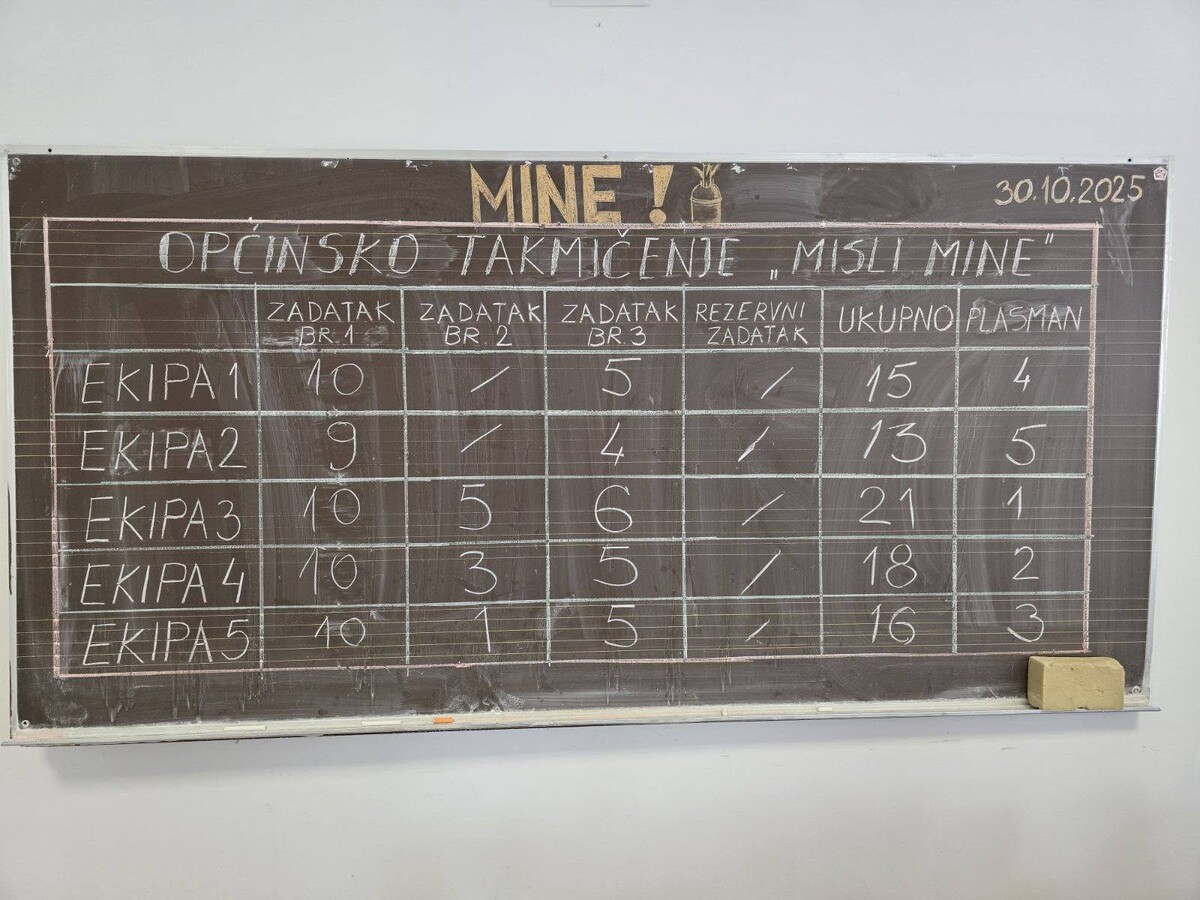 MINE!
30.10.2025
OPĆINSKO TAKMIČENJE „MISLI MINE"
ZADATAK BR.1 ZADATAK BR. 2 ZADATAK BR.3 REZERVNI ZADATAK UKUPNO PLASMAN
EKIPA 1 10 / 5 / 15 4
EKIPA 2 9 / 4 / 13 5
EKIPA 3 10 5 6 / 21 1
EKIPA 4 10 3 5 / 18 2
EKIPA 5 10 1 5 / 16 3